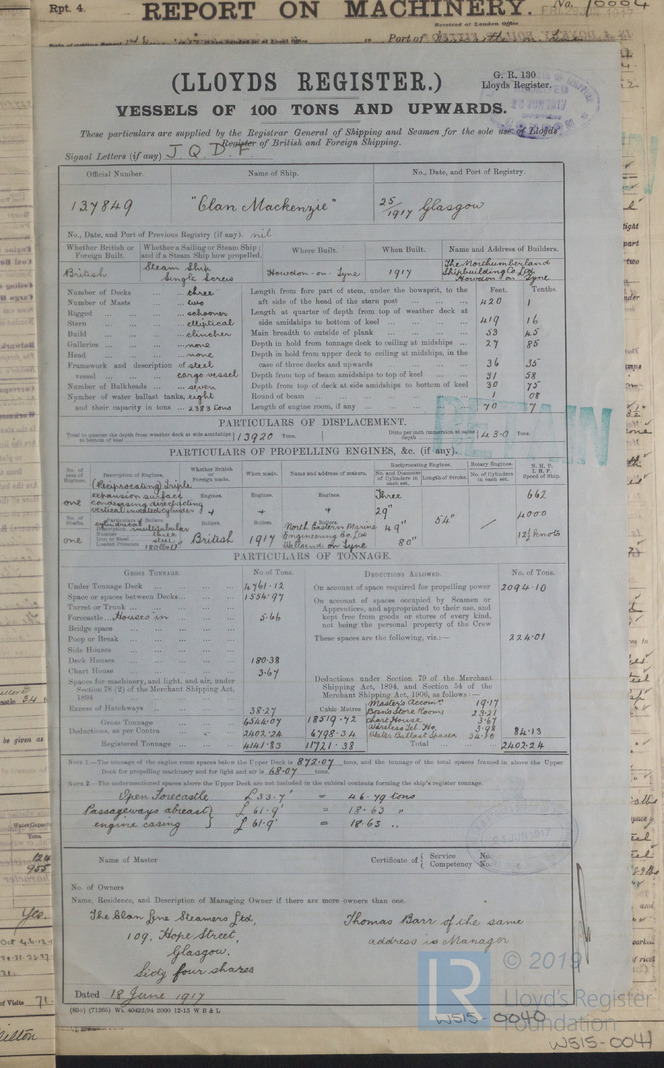 Rpt. 4.
REPORT ON MACHINERY.
No. 10004
Received at London Office
Port of
(LLOYDS REGISTER.)
G. R. 130.
Lloyds Register.
VESSELS OF 100 TONS AND UPWARDS.
These particulars are supplied by the Registrar General of Shipping and Seamen for the sole use of Lloyds' Register of British and Foreign Shipping.
Signal Letters (if any) J. Q. D. F
Official Number. Name of Ship. No., Date, and Port of Registry.
137849 "Clan Mackenzie" 25/1917 Glasgow
No., Date, and Port of Previous Registry (if any). nil
Whether British or Foreign Built. Whether a Sailing or Steam Ship; and if a Steam Ship how propelled. Where Built. When Built. Name and Address of Builders.
British Steam Ship Single Screw Howdon-on-Tyne 1917 The Northumberland Shipbuilding Co. Ltd Howdon on Tyne
Number of Decks three
Number of Masts two
Rigged schooner
Stern elliptical
Build clincher
Galleries none
Head none
Framework and description of vessel steel cargo vessel
Number of Bulkheads seven
Number of water ballast tanks, eight
and their capacity in tons 2383 tons
Feet. Tenths.
Length from fore part of stem, under the bowsprit, to the aft side of the head of the stern post 420 1
Length at quarter of depth from top of weather deck at side amidships to bottom of keel 419 16
Main breadth to outside of plank 53 45
Depth in hold from tonnage deck to ceiling at midships 27 85
Depth in hold from upper deck to ceiling at midships, in the case of three decks and upwards 36 35
Depth from top of beam amidships to top of keel 31 58
Depth from top of deck at side amidships to bottom of keel 30 75
Round of beam 1 08
Length of engine room, if any 70 7
PARTICULARS OF DISPLACEMENT.
Total to quarter the depth from weather deck at side amidships to bottom of keel 13920 Tons.
Ditto per inch immersion at same depth 43.0 Tons.
PARTICULARS OF PROPELLING ENGINES, &c. (if any).
No. of sets of Engines. Description of Engines. Whether British or Foreign made. When made. Name and address of makers. Reciprocating Engines. Rotary Engines. N. H. P. I. H. P. Speed of Ship.
No. and Diameter of Cylinders in each set. Length of Stroke. No. of Cylinders in each set.
one (Reciprocating) Triple expansion surface condensing direct acting vertical inverted cylinder Engines. Engines. Engines. Three 29" 662
No. of Shafts. Particulars of Boilers. Boilers. Boilers Boilers. 4000
one cylindrical multitubular three steel 180 lbs British 1917 North Eastern Marine Engineering Co. Ltd Wallsend on Tyne 49" 80" 54" 12½ knots
PARTICULARS OF TONNAGE.
GROSS TONNAGE. No. of Tons. DEDUCTIONS ALLOWED. No. of Tons.
Under Tonnage Deck 4761.12
Space or spaces between Decks 1554.97
Turret or Trunk
Forecastle Houses in 5.66
Bridge space
Poop or Break
Side Houses
Deck Houses 180.38
Chart House 3.67
Spaces for machinery, and light, and air, under Section 78 (2) of the Merchant Shipping Act, 1894
Excess of Hatchways 38.27
Gross Tonnage 6544.07
Deductions, as per Contra 2402.24
Registered Tonnage 4141.83
Cubic Metres
18519.72
6798.34
11721.38
On account of space required for propelling power 2094.10
On account of spaces occupied by Seamen or Apprentices, and appropriated to their use, and kept free from goods or stores of every kind, not being the personal property of the Crew
These spaces are the following, viz.:— 224.01
Deductions under Section 79 of the Merchant Shipping Act, 1894, and Section 54 of the Merchant Shipping Act, 1906, as follows:—
Master's Accom 19.17
Bosn's Store Rooms
Chart House 3.67
Wireless Tel. Ho. 3.98
Water Ballast Spaces
84.13
Total 2402.24
NOTE 1.—The tonnage of the engine room spaces below the Upper Deck is 872.07 tons, and the tonnage of the total spaces framed in above the Upper Deck for propelling machinery and for light and air is 68.07 tons.
NOTE 2.—The undermentioned spaces above the Upper Deck are not included in the cubical contents forming the ship's register tonnage.
Open Forecastle £ 33.7' = 46.79 tons
Passageways abreast } £ 61.9' = 18.63 "
engine casing } £ 61.9' = 18.63 "
Name of Master
Certificate of { Service No.
Competency No.
No. of Owners
Name, Residence, and Description of Managing Owner if there are more owners than one.
The Clan Line Steamers Ltd,
109, Hope Street,
Glasgow.
Sixty four shares
Thomas Barr of the same
address is Manager
Dated 18 June 1917
(85c) (71265) Wt. 40422/94 2000 12-15 W B & L
DETAIN
LR
© 2019
Lloyd's Register
Foundation
W515-0040
W515-0041